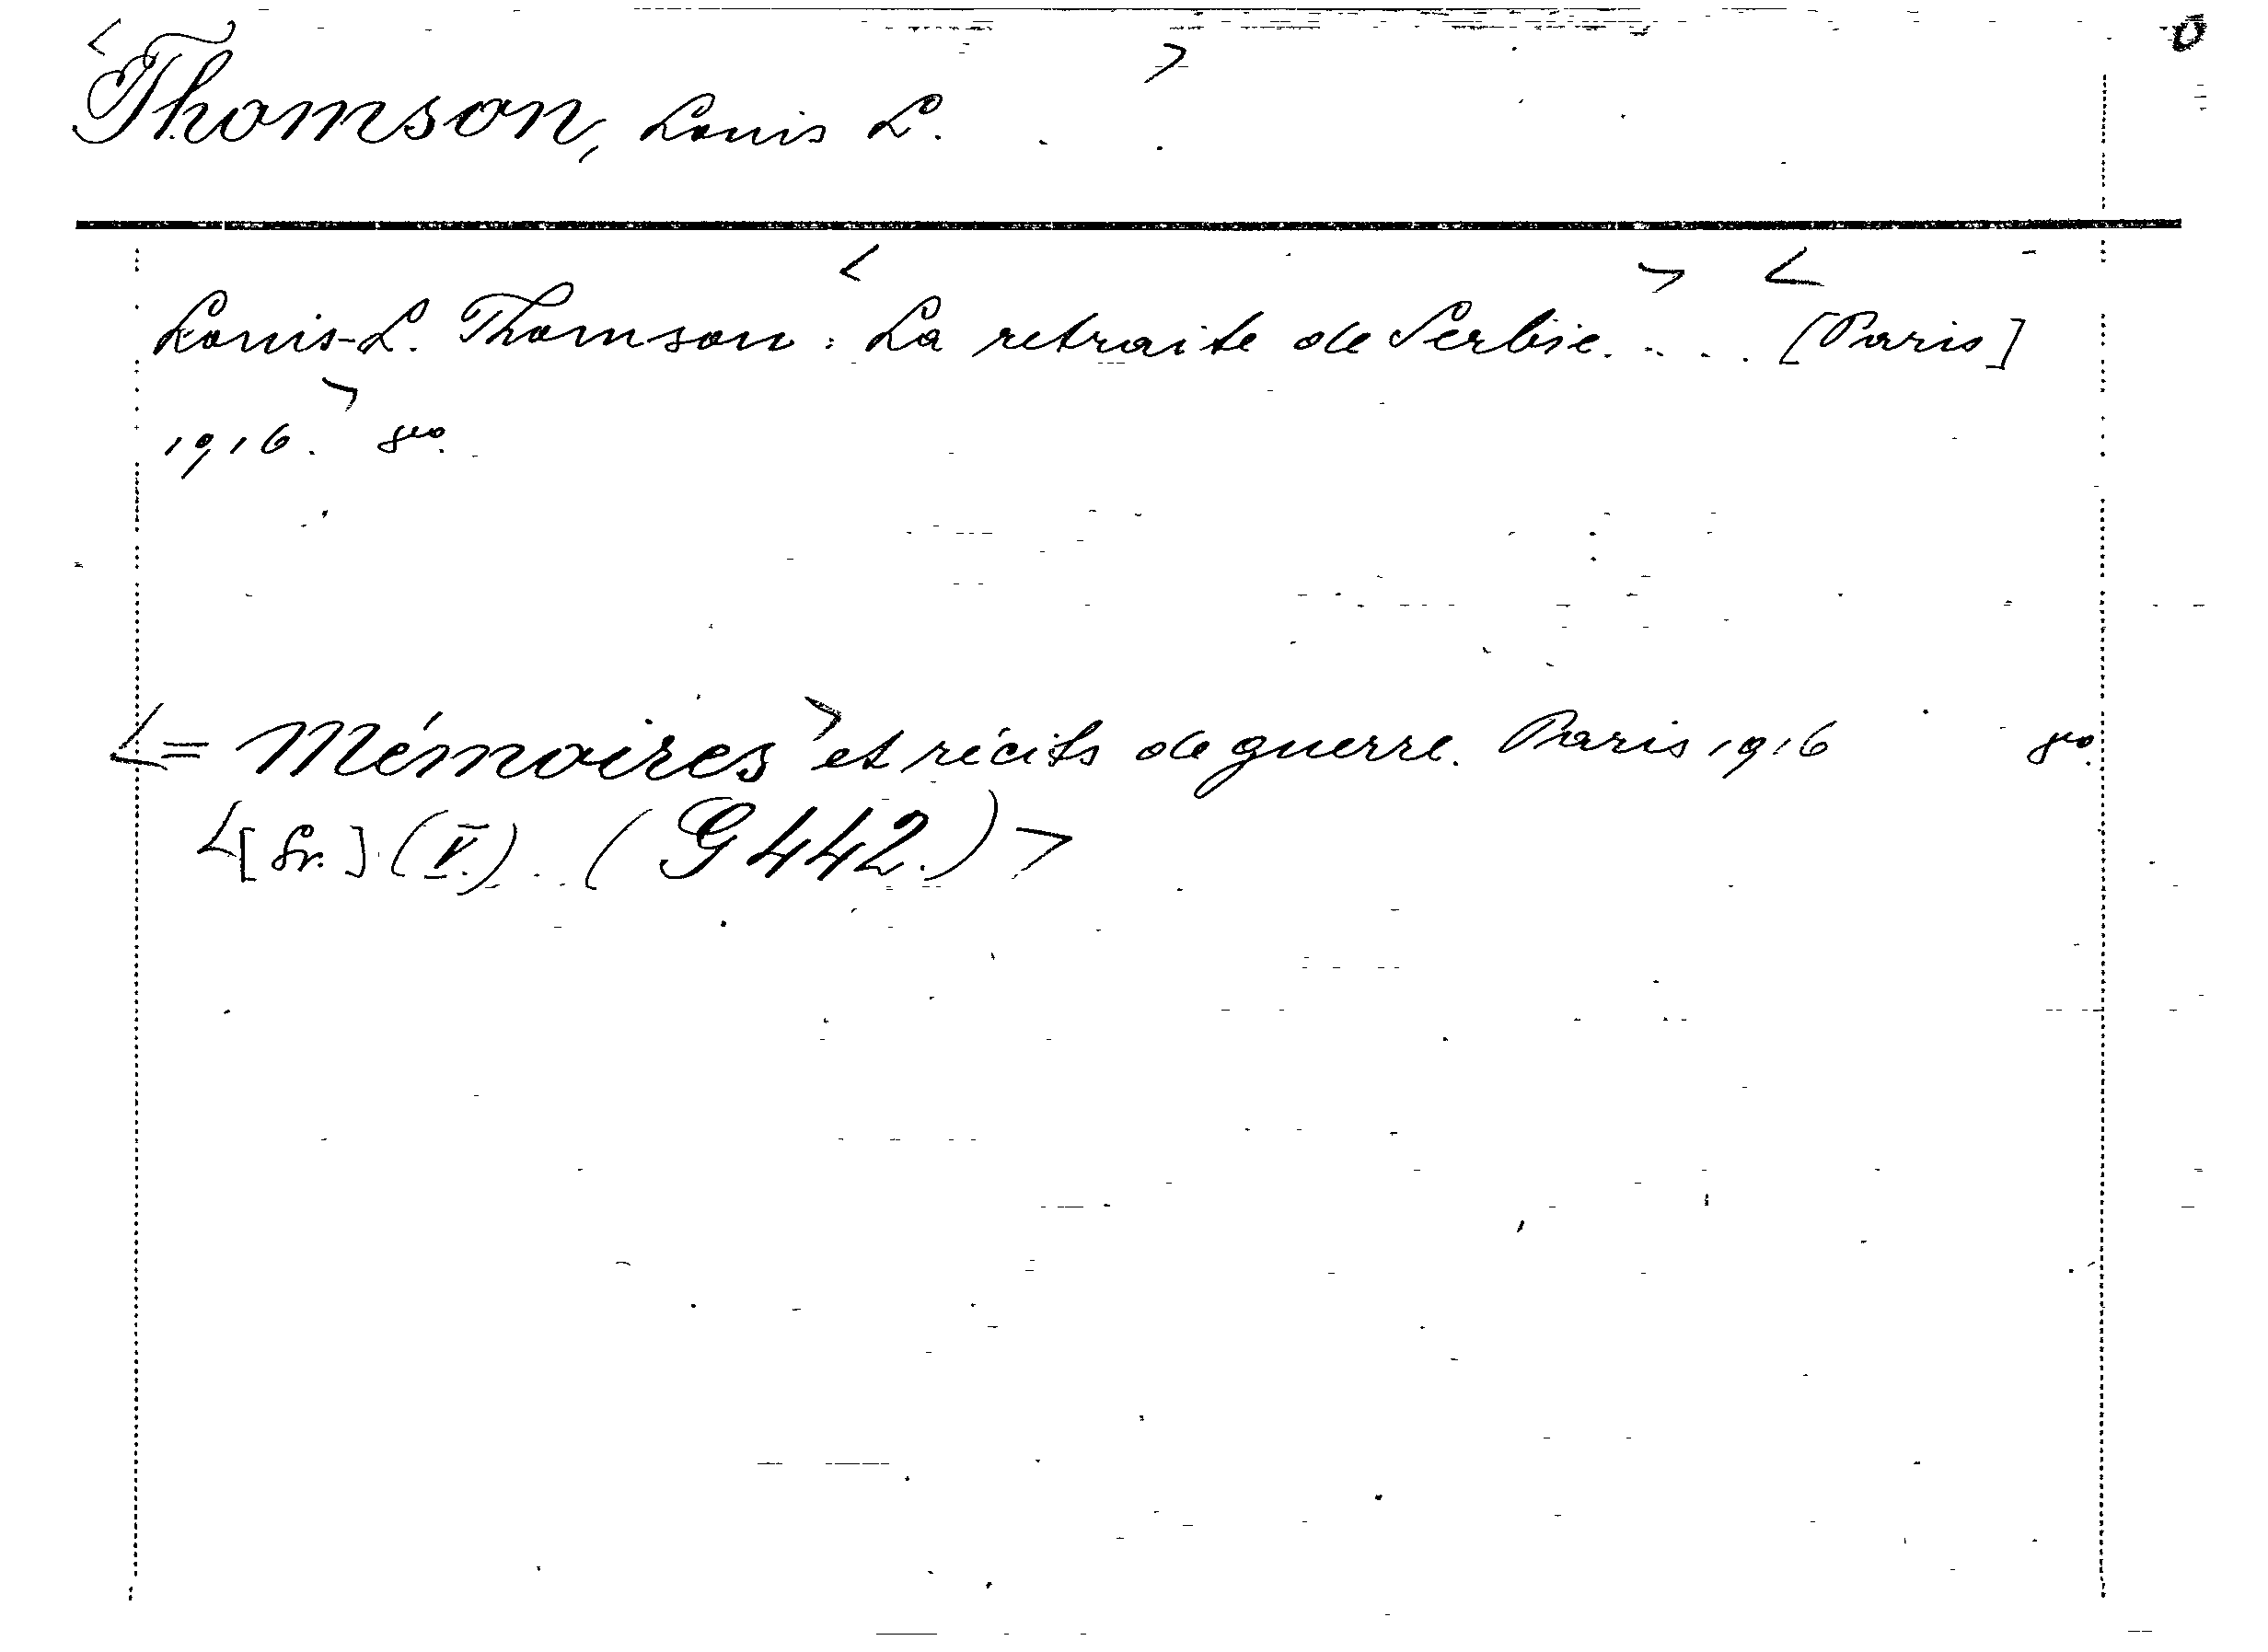 <Thomson, Louis L. >
Louis-L. Thomson: <La retraite de Serbie. . . .> <[Paris]
1916.> 8vo.
<= Mémoires> et récits de guerre. Paris 1916 8vo.
<[Sr.] (V.) . . (G 442.)>